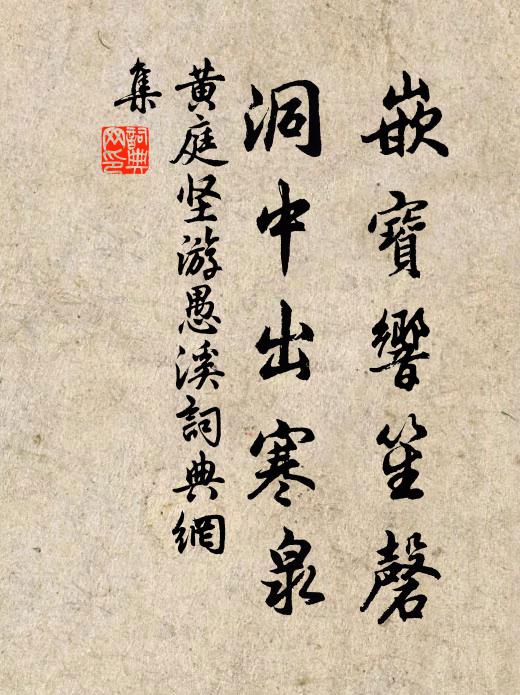 嵌寶響笙磬
洞中出寒泉
黄庭坚游愚溪詞典網
集
詞典网印